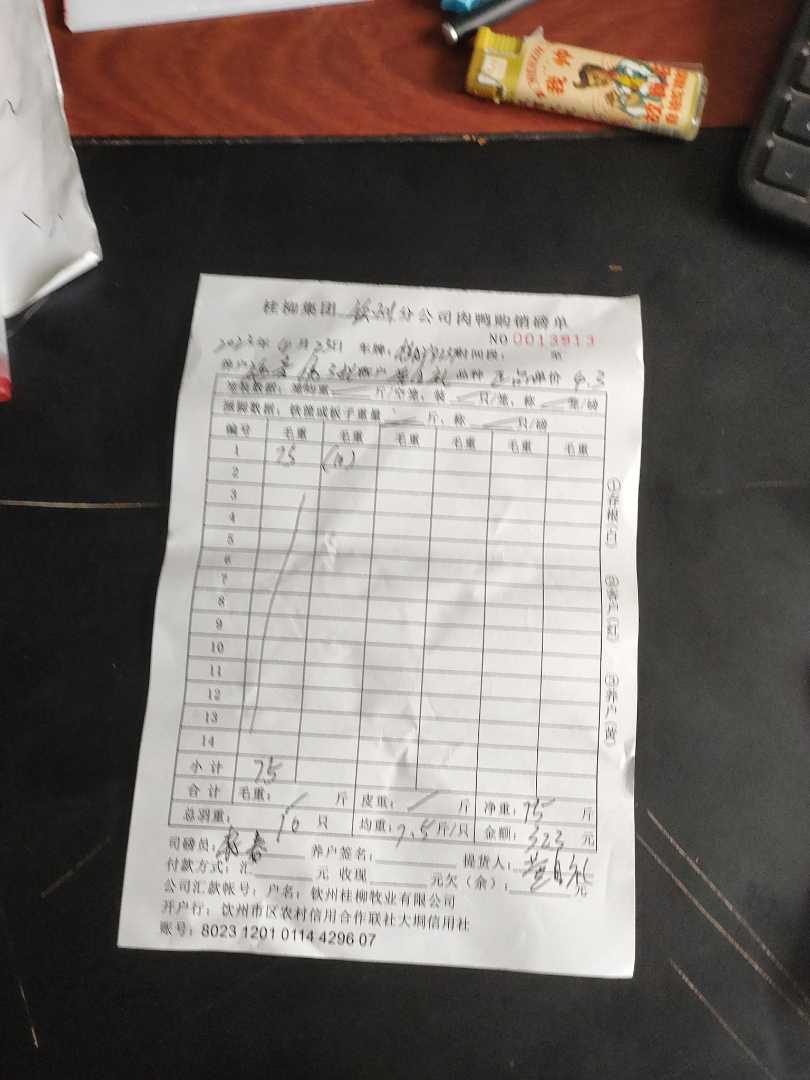 我 帅
桂柳集团 钦州 分公司肉鸭购销磅单
NO 0013913
2023年 4月 23日 车牌: 时间段: 至
养户 客户 品种 正品 单价 4.3
笼装数据: 笼均重 斤/空笼, 装 只/笼, 称 笼/磅
重量 斤, 称 只/磅
编号 毛重 毛重 毛重 毛重 毛重 毛重
1 75 (10)
2
3
4
5
6
7
8
9
10
11
12
13
14
小 计 75
合 计 毛重: 斤 皮重: 斤 净重: 75 斤
总羽重: 10 只 均重: 7.5 斤/只 金额: 323 元
司磅员: 养户签名: 提货人:
付款方式: 汇 元 收现 元欠(余): 元
公司汇款帐号: 户名: 钦州桂柳牧业有限公司
开户行: 钦州市区农村信用合作联社大垌信用社
账号: 8023 1201 0114 4296 07
①存根(白) ②客户(红) ③养户(黄)